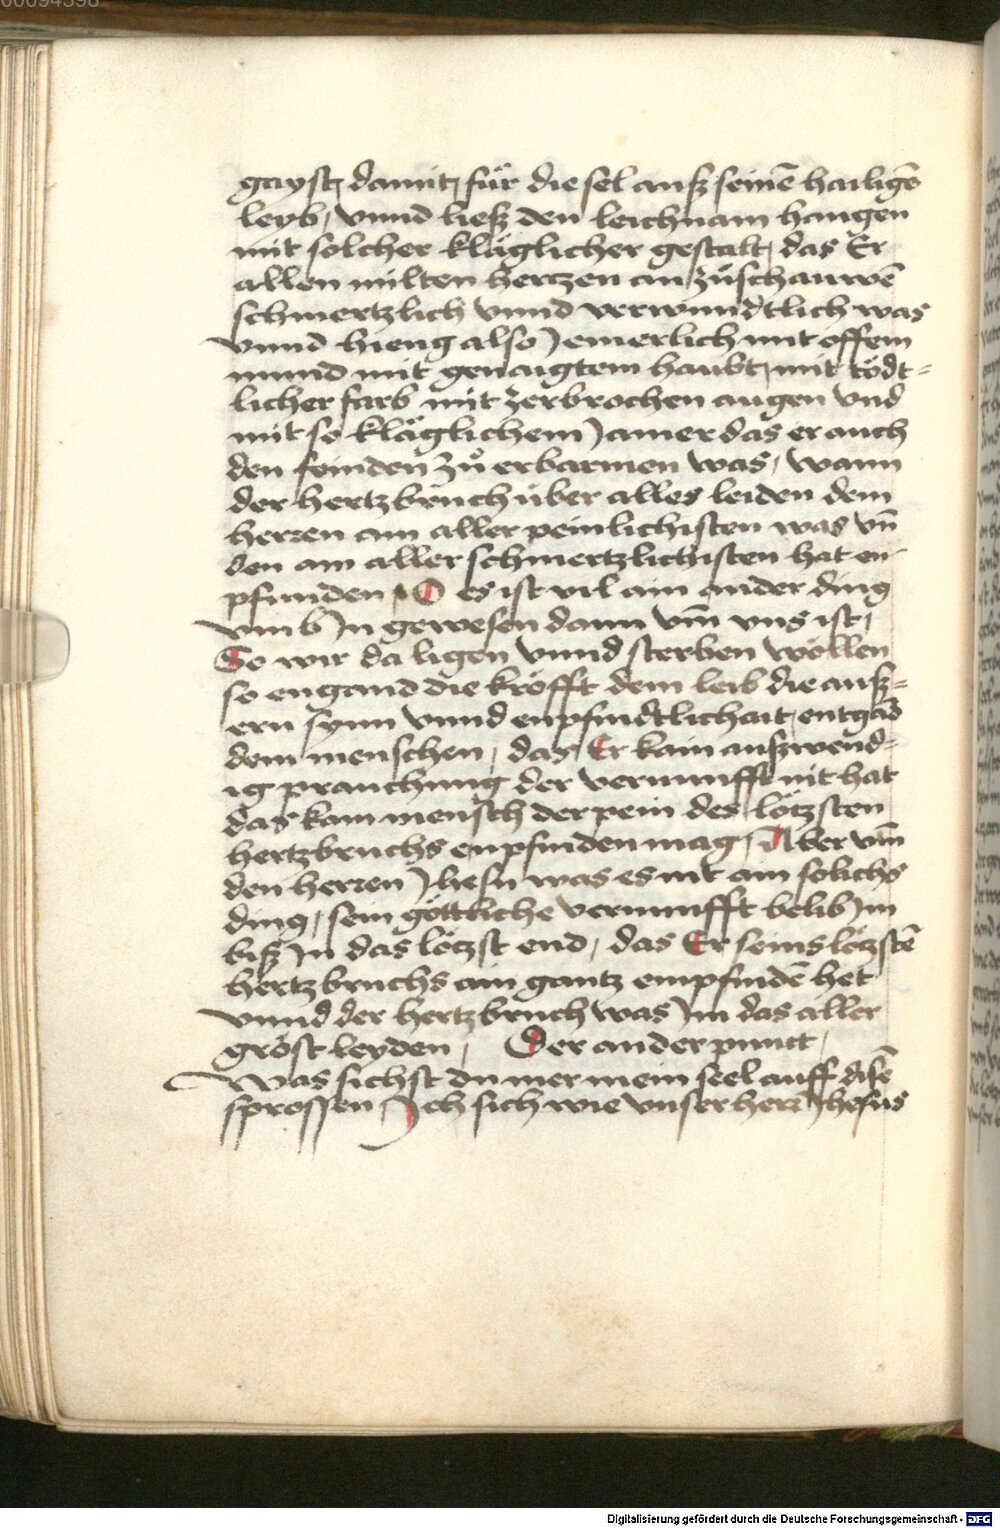 00094398
gayst, damit, für die sel auß seinē hailigē
leyb, vnnd ließ den leichnam hangen
mit solcher kläglicher gestalt, das Er
allen milten hertzen an zůschauwē
schmertzlich vnnd verwundtlich was
vnnd hieng also Jemerlich mit offem
mund mit genaigtem haubt, mit tödt=
licher farb mit zerbrochen augen vnd
mit so kläglichem Jamer das er auch
den feinden zů erbarmen was, wann
der hertzbruch über alles leiden dem
herren am aller peinlichisten was vn̄
den am aller schmertzlichisten hat en
pfunden, O es ist vil ain ander ding
vmb In gewesen dann vm̄ vns ist,
So wir da ligen vnnd sterben wöllen
so engand die kröfft dem leib die auß=
ern synn vnnd enpfindtlichait, entgād
dem menschen, das Er kain außwend=
ig prauchung der vernunfft nit hat
das kam mensch der pein des lötzsten
hertzbruchs enpfinden mag, Aber vm̄
den herren Jhesu was es nit ain solichs
ding, sein göttliche vernunfft belib Im
biß In das lötzst end, das Er seins lötzstē
hertzbruchs ain gantz empfindē het
vnnd der hertzbruch was Im das aller
gröst leyden, Der ander punct,
Was sichst du mer mein seel auff disē
sprossen Ich sich wie vnser herr Jhesus
Digitalisierung gefördert durch die Deutsche Forschungsgemeinschaft - DFG